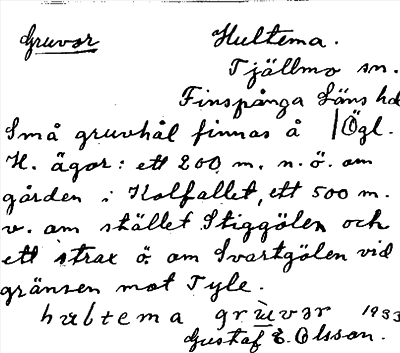 Gruvor
Hultema.
Tjällmo sn.
Finspånga Läns hd
Små gruvhål finnas å | Ögl.
H. ägor: ett 200 m. n. ö. om
gården i Kolfallet, ett 500 m.
v. om stället Stiggölen och
ett strax ö. om Svartgölen vid
gränsen mot Tyle.
hultema gruvər 1933
Gustaf E. Olsson.